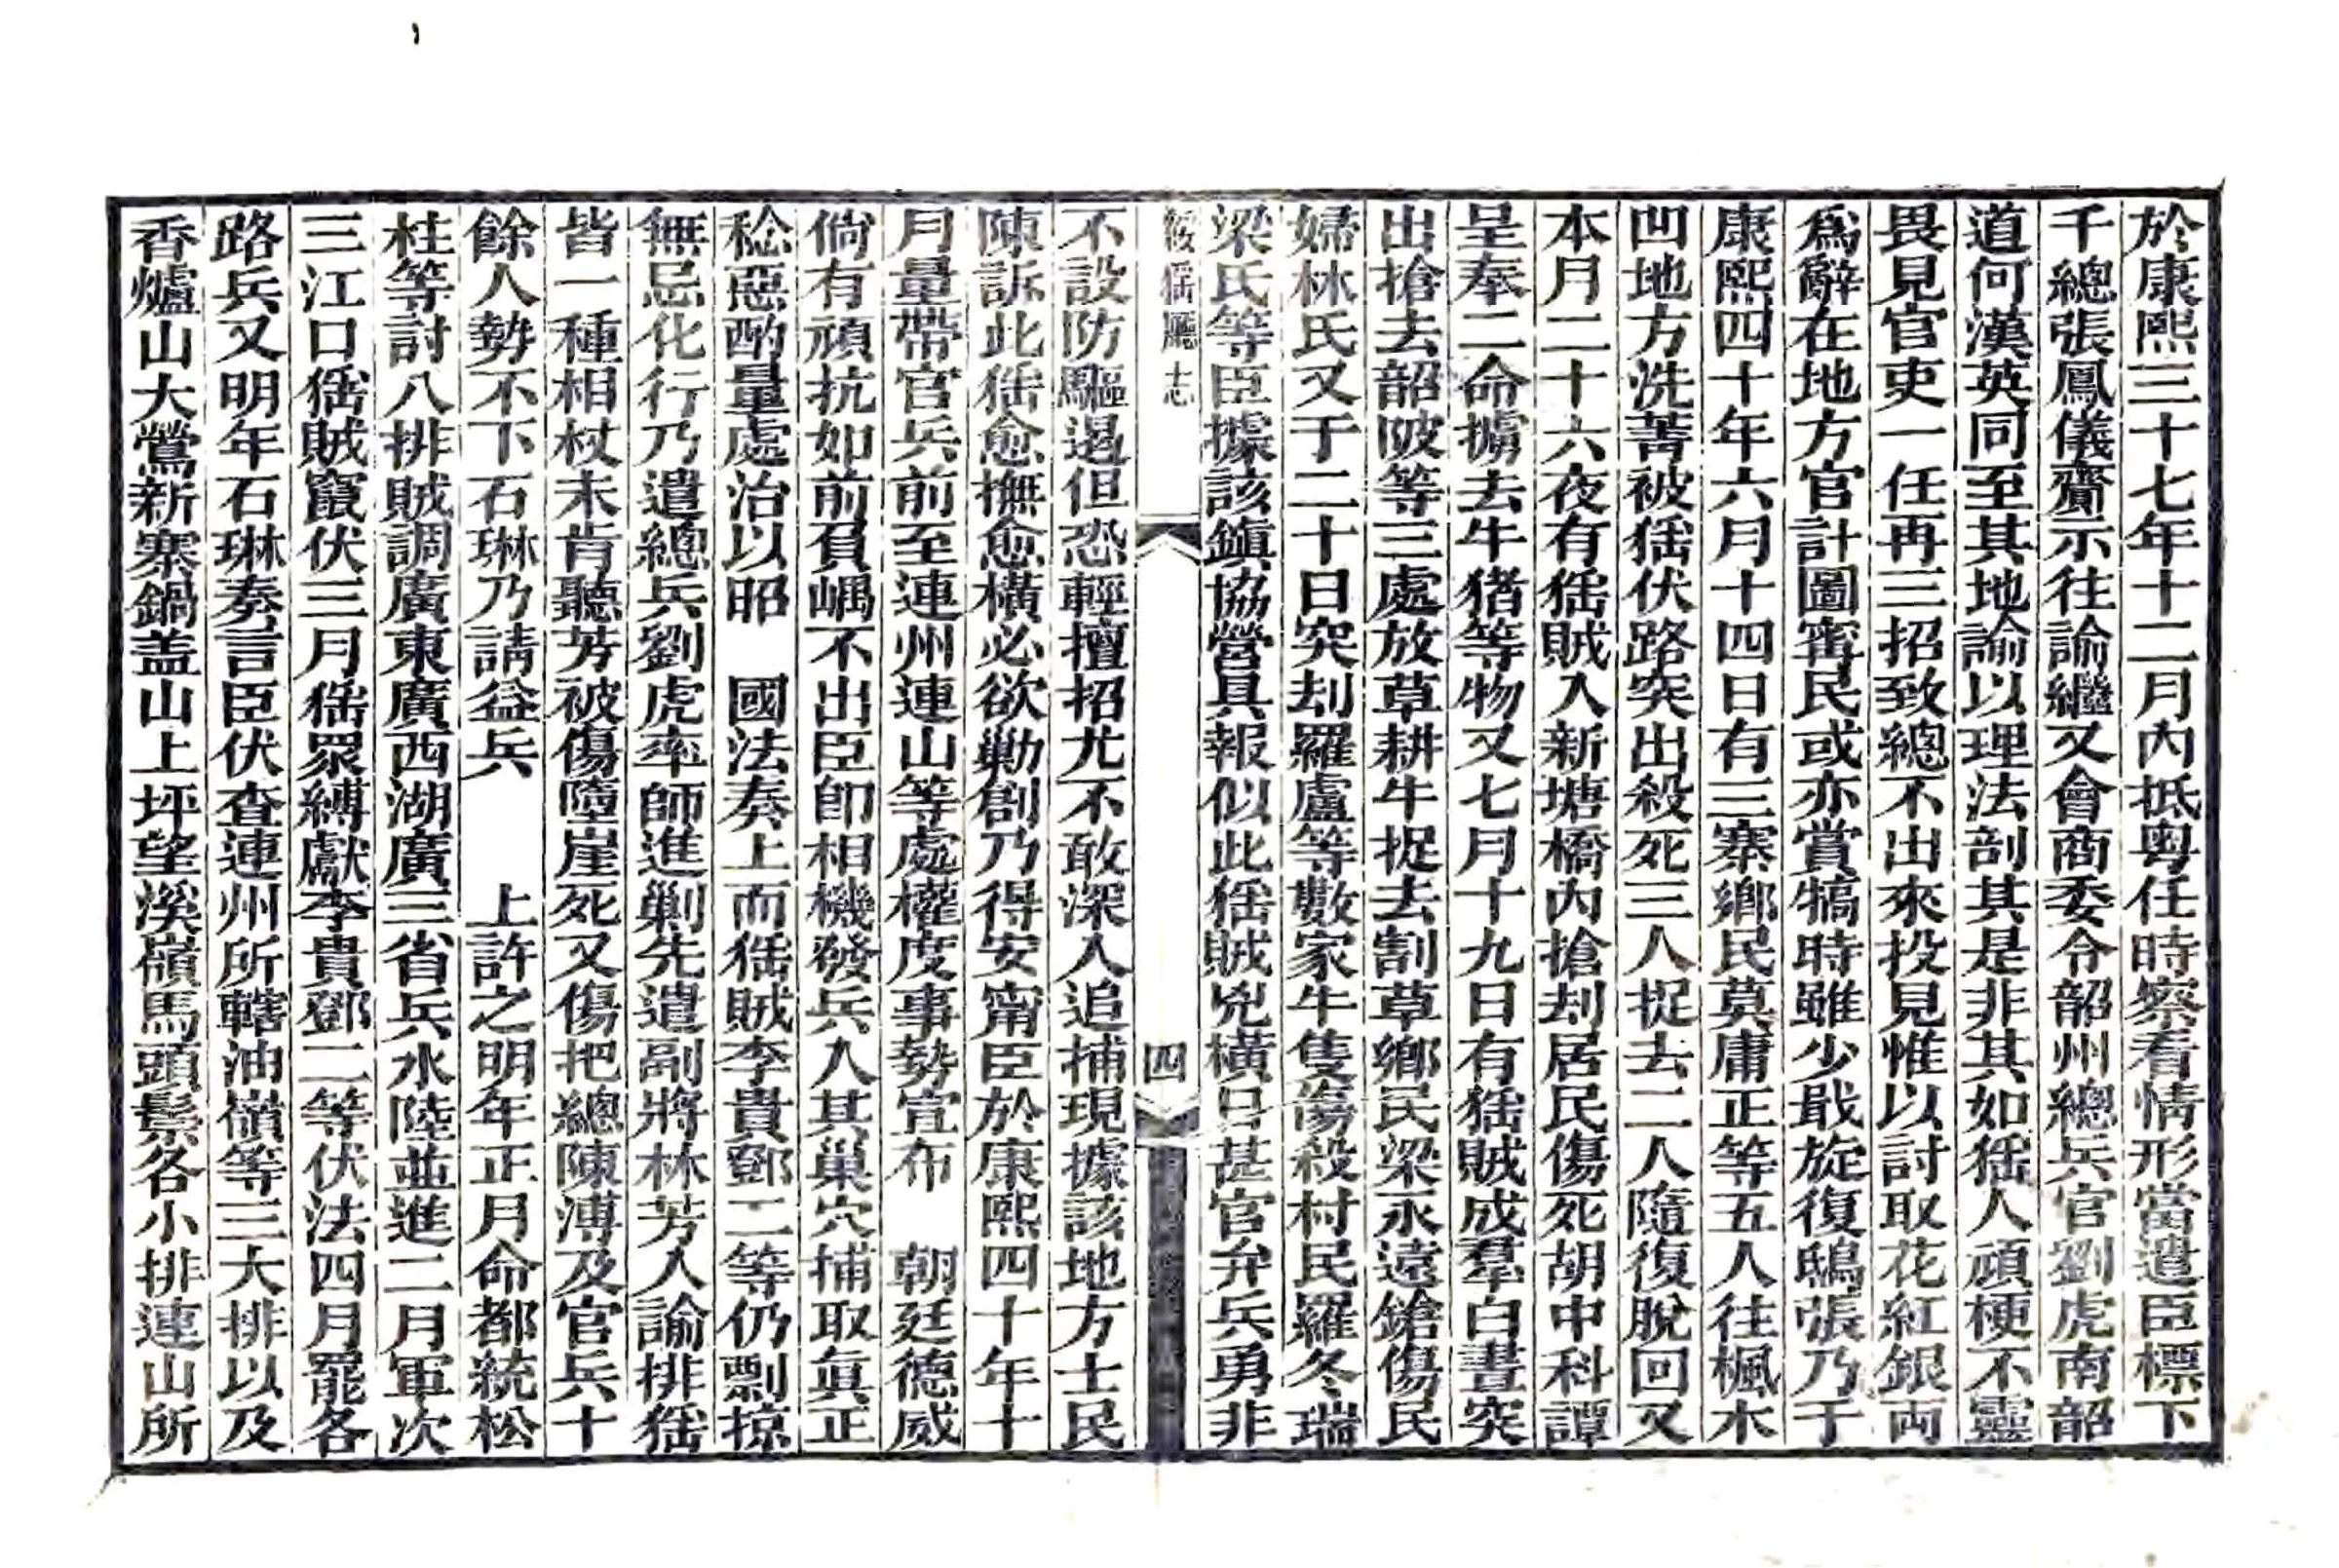 於康熙三十七年十二月內抵粤任時察看情形當遣臣標下
千總張鳳儀齎示往諭繼又會商委令韶州總兵官劉虎南韶
道何漢英同至其地諭以理法剖其是非其如猺人頑梗不靈
畏見官吏一任再三招致總不出來投見惟以討取花紅銀両
爲辭在地方官計圖寗民或亦賞犒時雖少戢旋復鴟張乃于
康熙四十年六月十四日有三寨鄉民莫庸正等五人往楓木
凹地方洗菁被猺伏路突出殺死三人捉去二人隨復脫回又
本月二十六夜有猺賊入新塘橋內搶刦居民傷死胡申科譚
呈奉二命擄去牛猪等物又七月十九日有猺賊成羣白晝突
出搶去韶陂等三處放草耕牛捉去割草鄉民梁永遠鎗傷民
婦林氏又于二十日突刦羅盧等數家牛隻傷殺村民羅冬瑞
梁氏等臣據該鎭協營具報似此猺賊兇橫日甚官弁兵勇非
綏猺廳志
四
不設防驅遏但恐輕擅招尤不敢深入追捕現據該地方士民
陳訴此猺愈撫愈橫必欲勦創乃得安甯臣於康熙四十年十
月量帶官兵前至連州連山等處權度事勢宣布　朝廷德威
倘有頑抗如前負嵎不出臣卽相機發兵入其巢穴捕取眞正
稔惡酌量處治以昭　國法奏上而猺賊李貴鄧二等仍剽掠
無忌化行乃遣總兵劉虎率師進剿先遣副將林芳入諭排猺
皆一種相杖未肯聽芳被傷墮崖死又傷把總陳溥及官兵十
餘人勢不下石琳乃請益兵　　上許之明年正月命都統松
桂等討八排賊調廣東廣西湖廣三省兵水陸並進二月軍次
三江口猺賊竄伏三月猺眾縛獻李貴鄧二等伏法四月罷各
路兵又明年石琳奏言臣伏查連州所轄油嶺等三大排以及
香爐山大鶯新寨鍋盖山上坪望溪嶺馬頭鬃各小排連山所